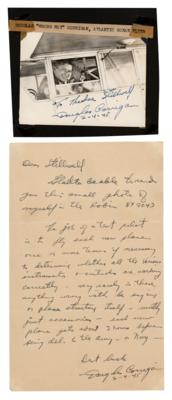 DOUGLAS "WRONG WAY" CORRIGAN, ATLANTIC OCEAN FLYER
To Theodore Stillwell
Douglas Corrigan
2-4-45
Dear Stillwell
Glad to be able to send
you this small photo of
myself - the Robin NX 9243
The job of a test pilot
is to fly each new plane
one or more times if necessary
to determine whether all the various
instruments & controls are working
correctly - very rarely is there
anything wrong with the engine
or plane structure itself - mostly
just accessories - each new
plane gets about 3 hours before
being del. to the Army - or Navy -
Best luck
Douglas Corrigan
2-4-45